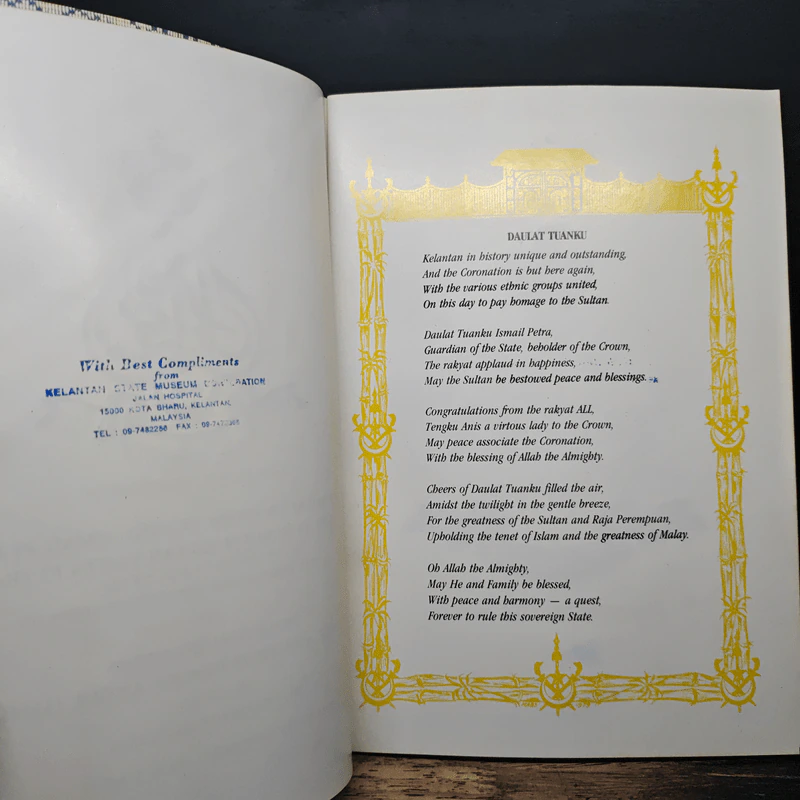 With Best Compliments
from
KELANTAN STATE MUSEUM CORPORATION
JALAN HOSPITAL
15000 KOTA BHARU, KELANTAN,
MALAYSIA
TEL : 09-7482266 FAX :
DAULAT TUANKU
Kelantan in history unique and outstanding,
And the Coronation is but here again,
With the various ethnic groups united,
On this day to pay homage to the Sultan.
Daulat Tuanku Ismail Petra,
Guardian of the State, beholder of the Crown,
The rakyat applaud in happiness,
May the Sultan be bestowed peace and blessings.
Congratulations from the rakyat ALL,
Tengku Anis a virtous lady to the Crown,
May peace associate the Coronation,
With the blessing of Allah the Almighty.
Cheers of Daulat Tuanku filled the air,
Amidst the twilight in the gentle breeze,
For the greatness of the Sultan and Raja Perempuan,
Upholding the tenet of Islam and the greatness of Malay.
Oh Allah the Almighty,
May He and Family be blessed,
With peace and harmony — a quest,
Forever to rule this sovereign State.